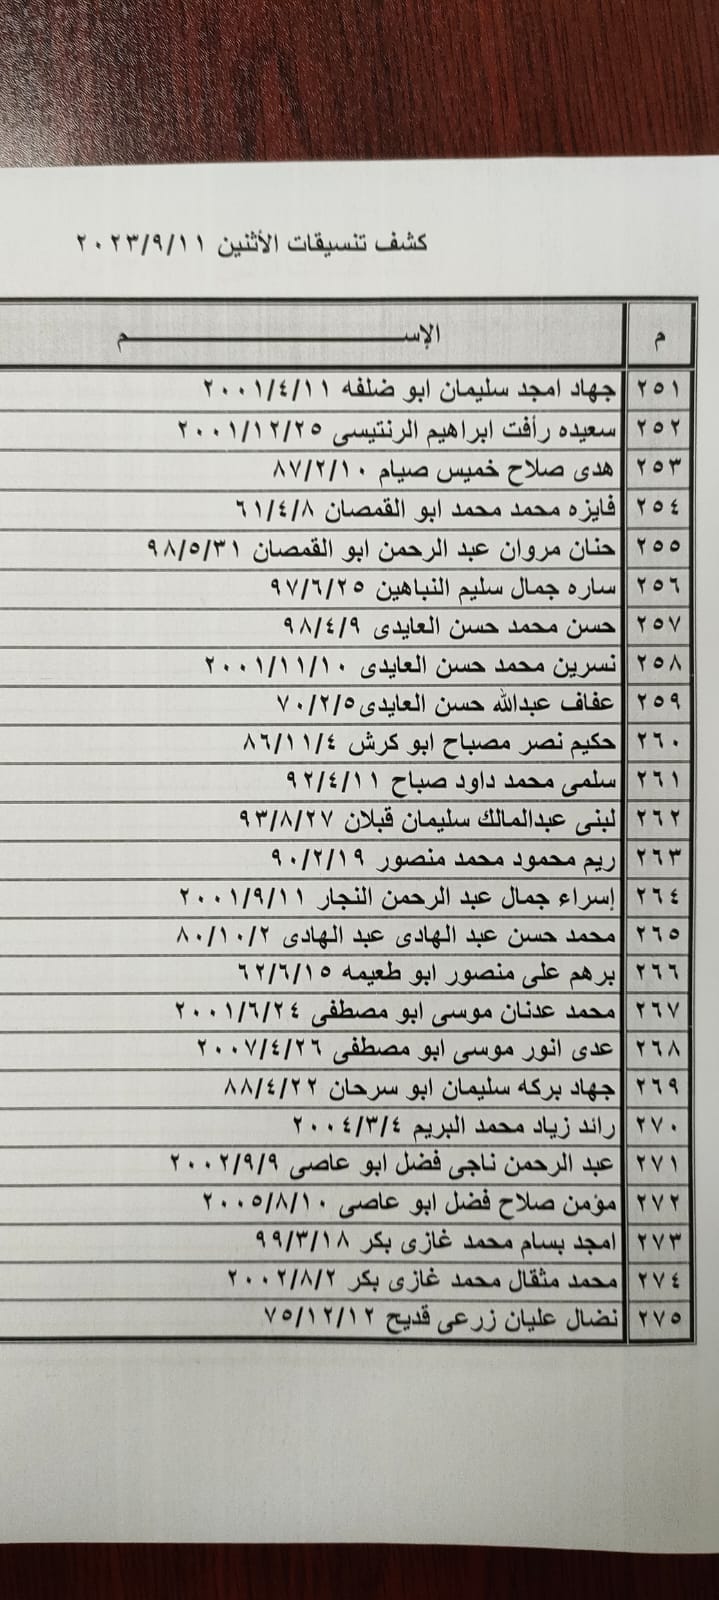 كشف تنسيقات الأثنين ٢٠٢٣/٩/١١
م الإســـــــــــــــــم
٢٥١ جهاد امجد سليمان ابو ضلفه ٢٠٠١/٤/١١
٢٥٢ سعيده رأفت ابراهيم الرنتيسى ٢٠٠١/١٢/٢٥
٢٥٣ هدى صلاح خميس صيام ٨٧/٢/١٠
٢٥٤ فايزه محمد محمد ابو القمصان ٦١/٤/٨
٢٥٥ حنان مروان عبد الرحمن ابو القمصان ٩٨/٥/٣١
٢٥٦ ساره جمال سليم النباهين ٩٧/٦/٢٥
٢٥٧ حسن محمد حسن العايدى ٩٨/٤/٩
٢٥٨ نسرين محمد حسن العايدى ٢٠٠١/١١/١٠
٢٥٩ عفاف عبدالله حسن العايدى٧٠/٢/٥
٢٦٠ حكيم نصر مصباح ابو كرش ٨٦/١١/٤
٢٦١ سلمى محمد داود صباح ٩٢/٤/١١
٢٦٢ لبنى عبدالمالك سليمان قبلان ٩٣/٨/٢٧
٢٦٣ ريم محمود محمد منصور ٩٠/٢/١٩
٢٦٤ إسراء جمال عبد الرحمن النجار ٢٠٠١/٩/١١
٢٦٥ محمد حسن عبد الهادى عبد الهادى ٨٠/١٠/٢
٢٦٦ برهم على منصور ابو طعيمه ٦٢/٦/١٥
٢٦٧ محمد عدنان موسى ابو مصطفى ٢٠٠١/٦/٢٤
٢٦٨ عدى انور موسى ابو مصطفى ٢٠٠٧/٤/٢٦
٢٦٩ جهاد بركه سليمان ابو سرحان ٨٨/٤/٢٢
٢٧٠ رائد زياد محمد البريم ٢٠٠٤/٣/٤
٢٧١ عبد الرحمن ناجى فضل ابو عاصى ٢٠٠٢/٩/٩
٢٧٢ مؤمن صلاح فضل ابو عاصى ٢٠٠٥/٨/١٠
٢٧٣ امجد بسام محمد غازى بكر ٩٩/٣/١٨
٢٧٤ محمد مثقال محمد غازى بكر ٢٠٠٢/٨/٢
٢٧٥ نضال عليان زرعى قديح ٧٥/١٢/١٢